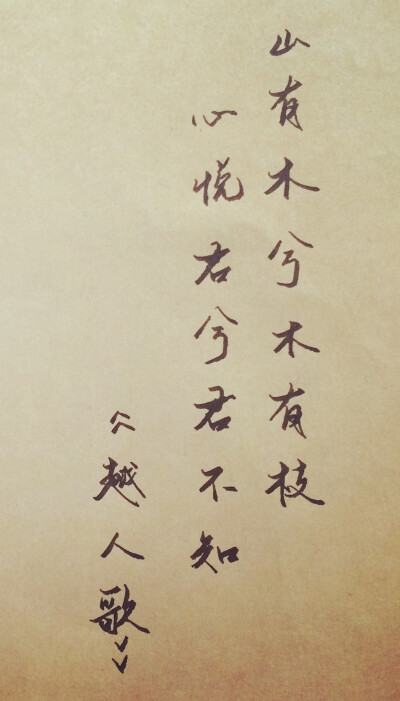 山有木兮木有枝
心悦君兮君不知
《越人歌》